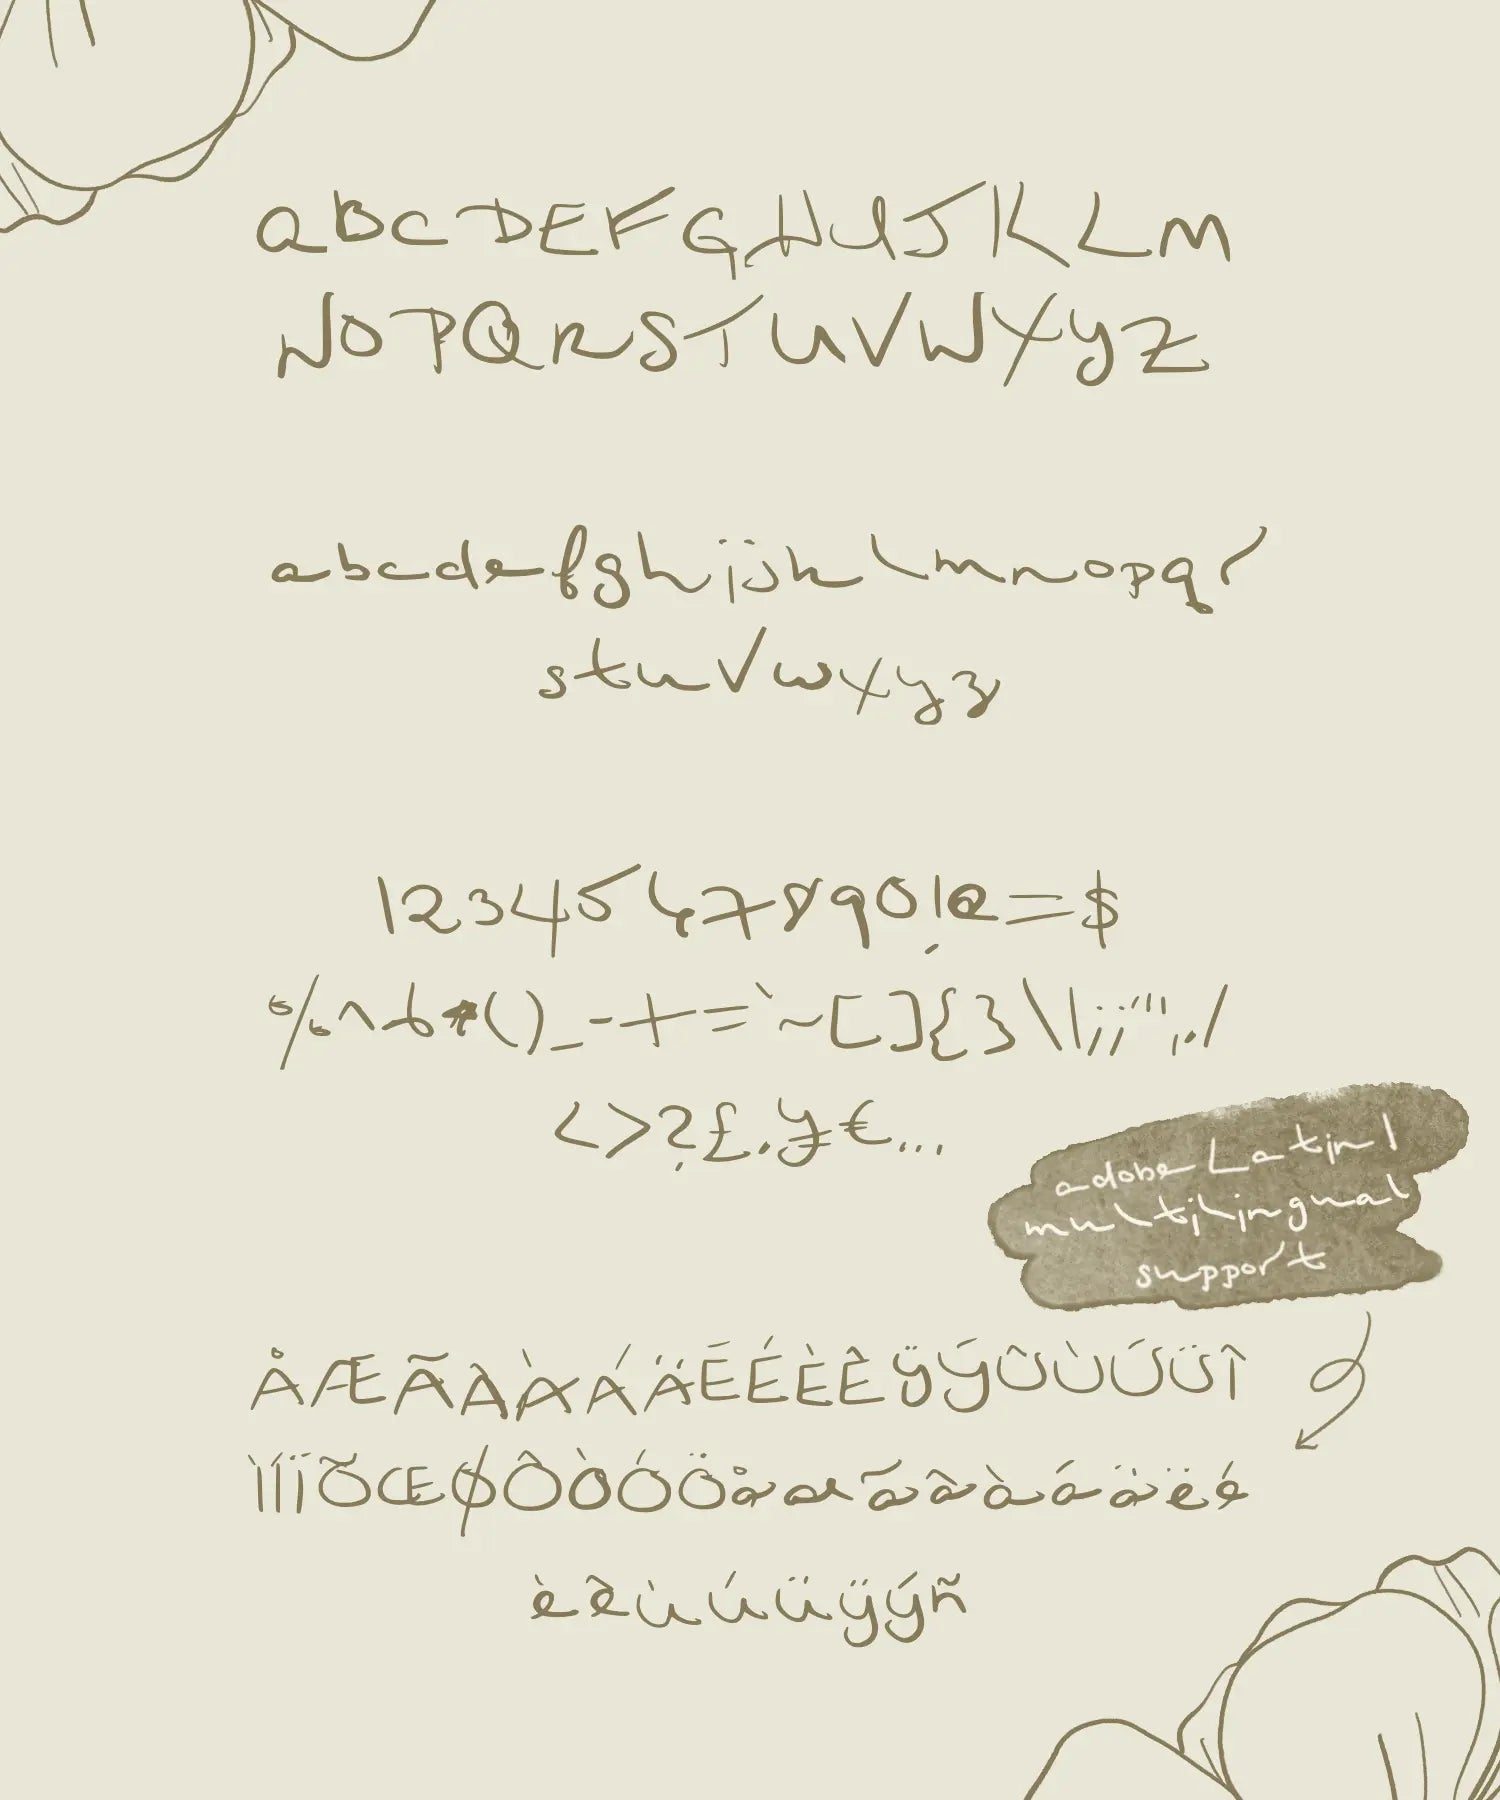 aBCDEFGHIJKLM
NOPQRSTUVWXYZ
abcdefghijklmnopqr
stuvwxyz
1234567890!@=$
%^&*()_-+=`~[]{}\|;;'"",./
<>?£.¥€...
adobe Latin 1
multilingual
support
ÅÆÃAÀÁÄĒÉÈÊŸÝÛÙÚÜÎ
ÌÍÏÕŒØÔÒÓÖåæãâàáäëé
èêùúüÿýñ